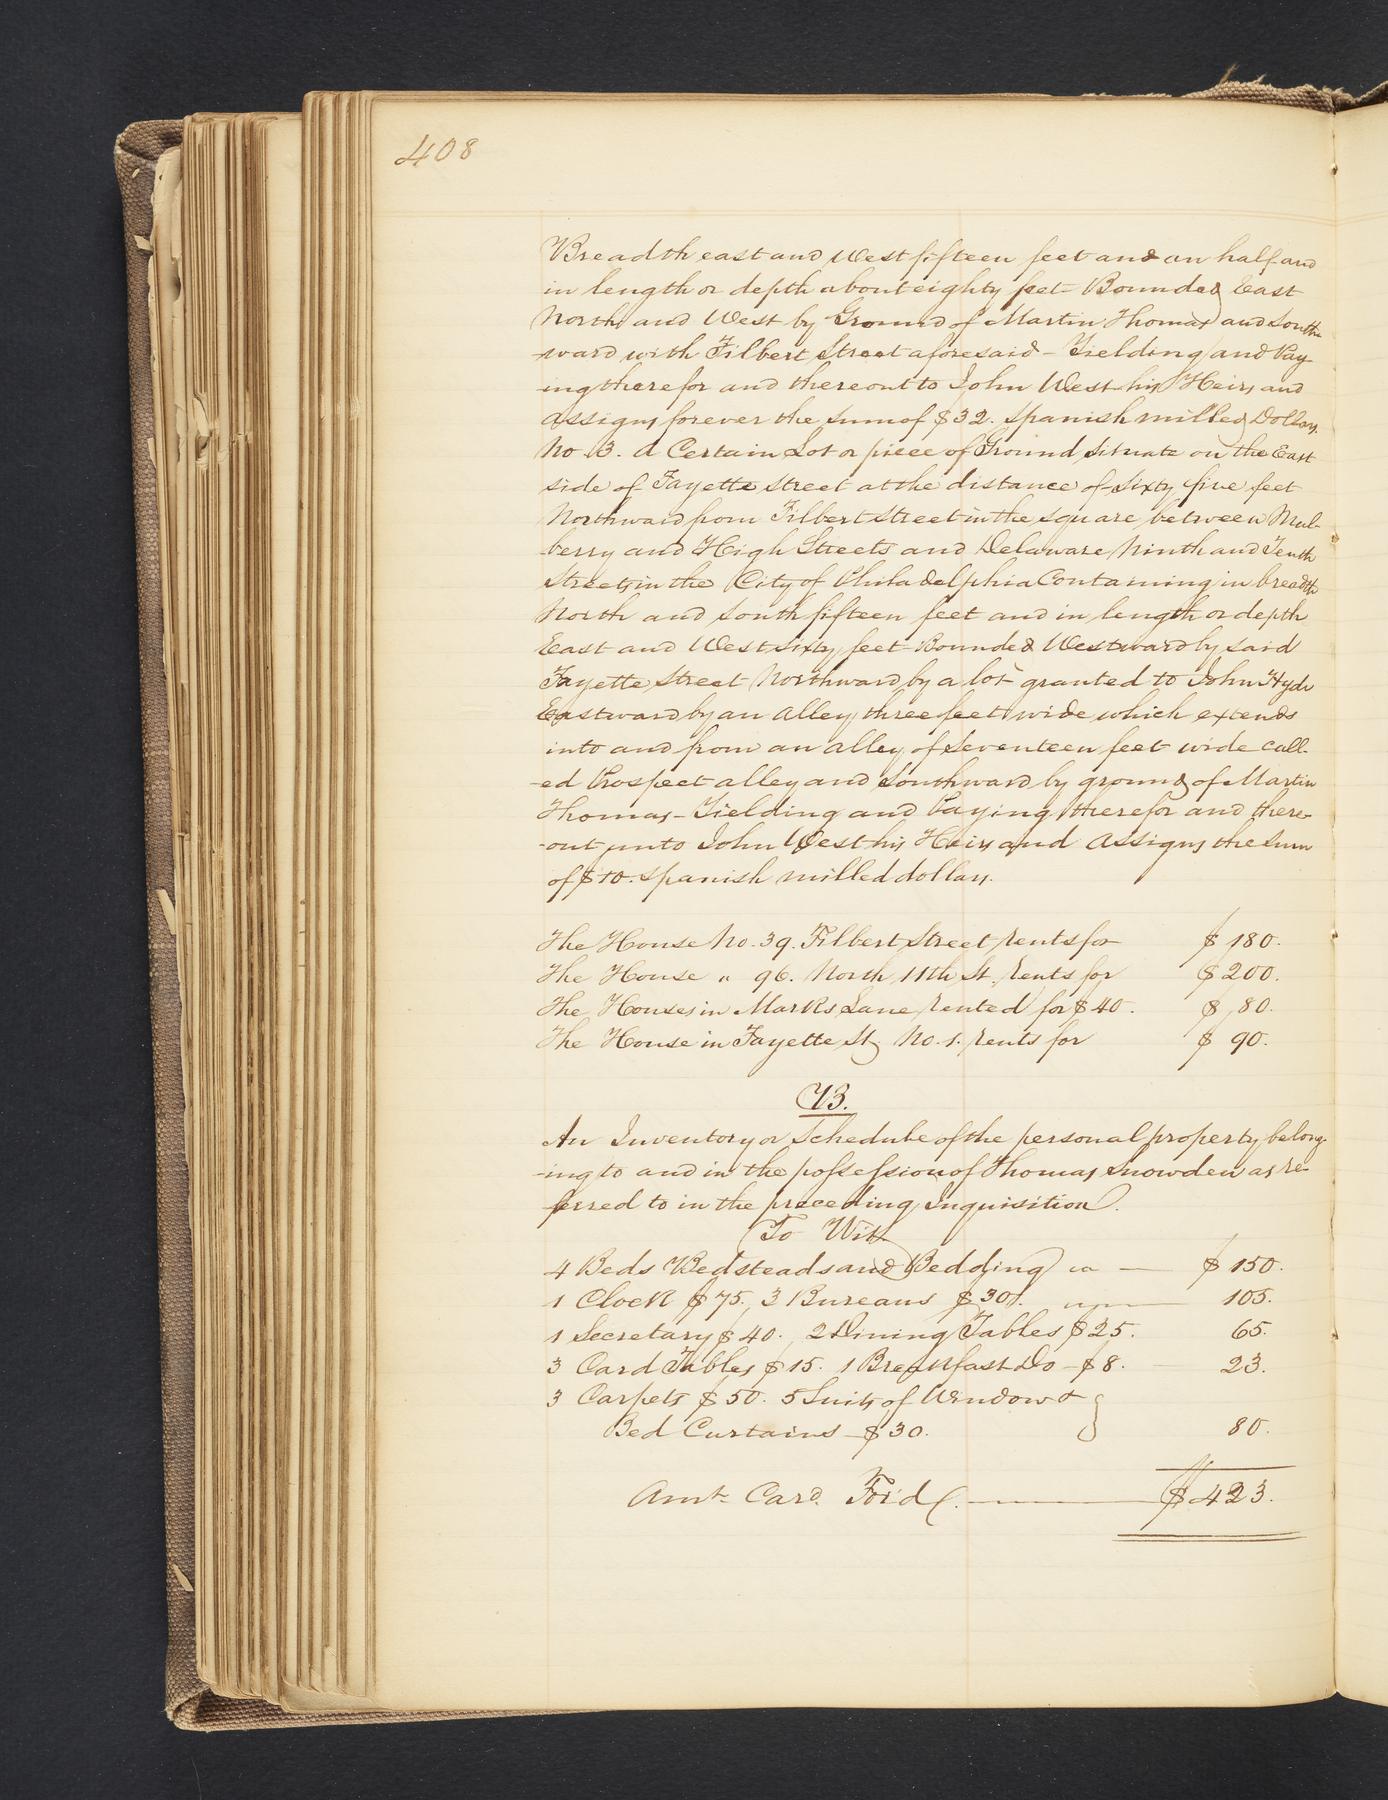 408
Breadth east and West fifteen feet and an half and
in length or depth about eighty feet - Bounded East
North and West by Ground of Martin Thomas and South
ward with Filbert Street aforesaid - Yielding and Pay
ing therefor and thereout to John West his Heirs and
assigns forever the sum of $32. Spanish milled Dollars.
No 13. A Certain Lot or piece of Ground Situate on the East
side of Fayette Street at the distance of Sixty five feet
Northward from Filbert Street in the square between Mul-
berry and High Streets and Delaware Ninth and Tenth
Streets in the City of Philadelphia Containing in breadth
North and South fifteen feet and in length or depth
East and West sixty feet - Bounded Westward by said
Fayette Street Northward by a lot granted to John Hyde
Eastward by an Alley three feet wide which extends
into and from an alley of Seventeen feet wide call-
-ed Prospect alley and Southward by ground of Martin
Thomas - Yielding and Paying therefor and there-
-out unto John West his Heirs and Assigns the sum
of $10. Spanish milled dollars.
The House No. 39. Filbert Street rents for $ 180.
The House " 96. North 11th St. rents for $ 200.
The Houses in Marks Lane rented for $40. $ 80.
The House in Fayette St. No. 1. rents for $ 90.
B.
An Inventory or Schedule of the personal property belong-
-ing to and in the possession of Thomas Snowden as re-
ferred to in the preceding Inquisition.
To Wit
4 Beds Bedsteads and Bedding — $ 150.
1 Clock $75. 3 Bureaus $30. — 105.
1 Secretary $40. 2 Dining Tables $25. 65.
3 Card Tables $15. 1 Breakfast Do - $8. 23.
3 Carpets $50. 5 Suits of Window &
Bed Curtains - $30. 80.
Amt. Card. Ford. — $423.